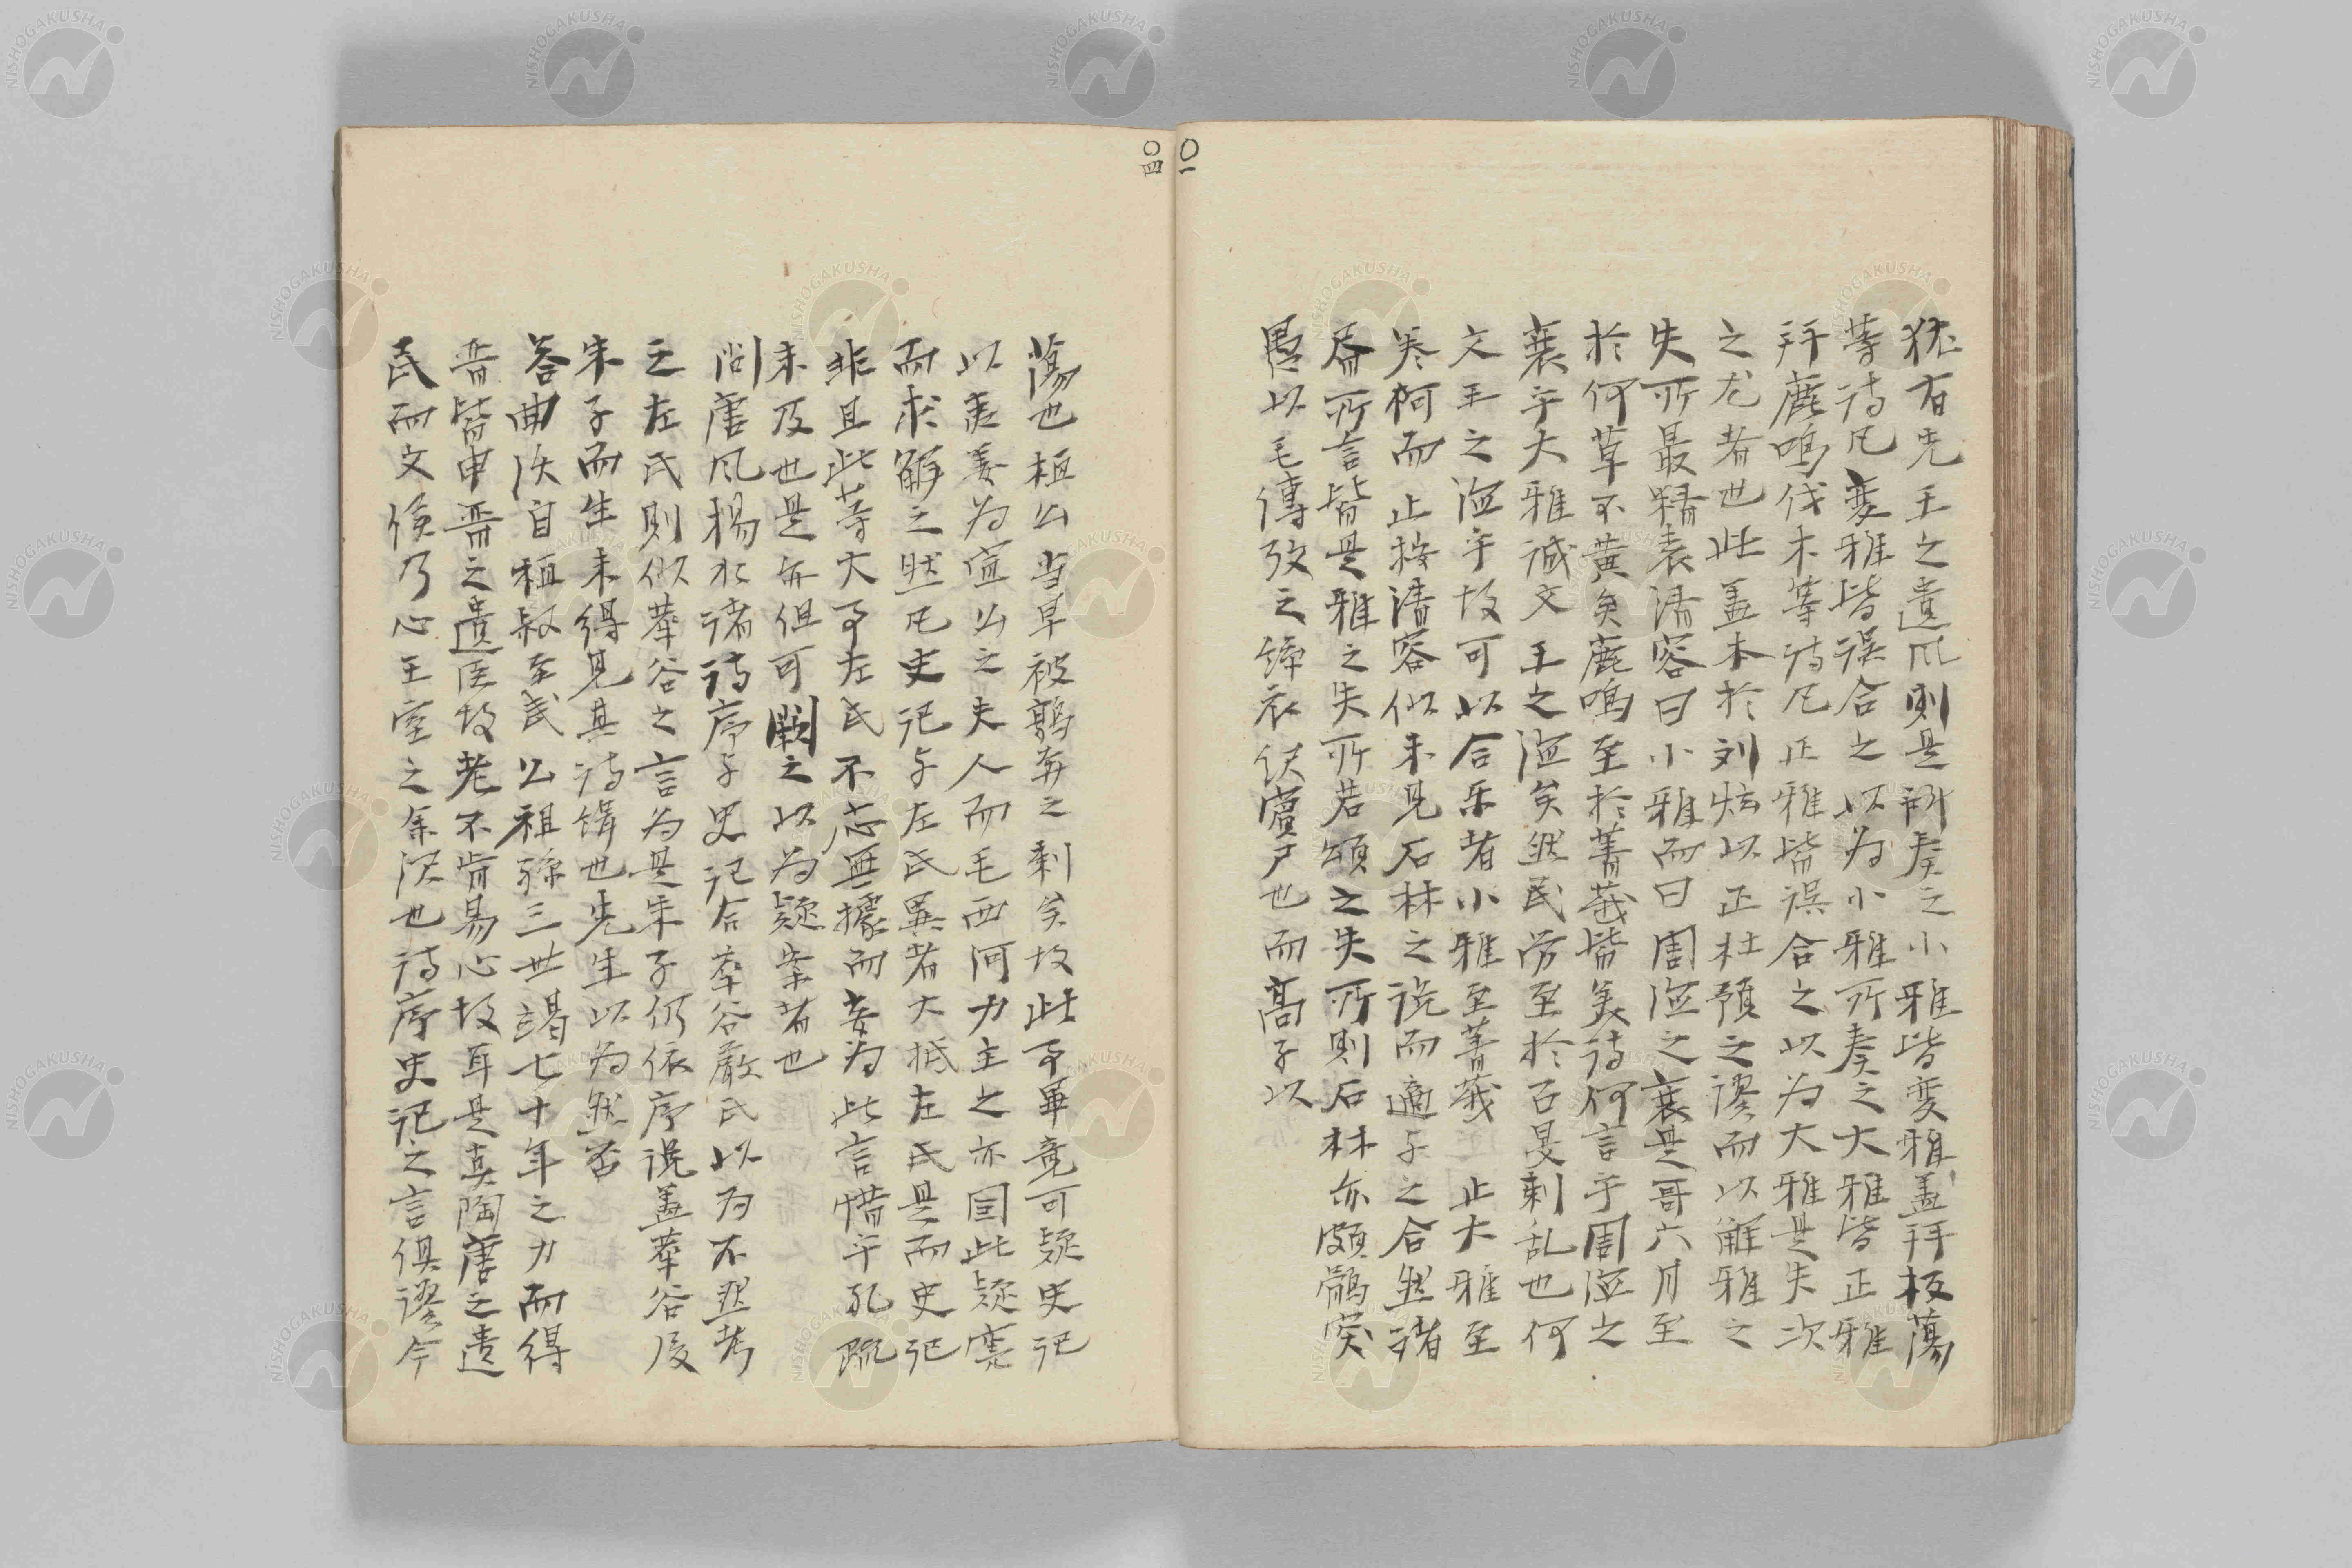 〇一
猶有先王之遺風則是所奏之小雅皆変雅蓋拜板蕩
等詩凡変雅皆誤合之以為小雅所奏之大雅皆正雅
拜鹿鳴伐木等詩凡正雅皆誤合之以為大雅是失次
之尤者也此蓋本於刘炫以正杜預之謬而以解雅之
失所最精袁清容曰小雅而曰周徳之衰是哥六月至
於何草不黄矣鹿鳴至於菁莪皆美詩何言乎周徳之
衰乎大雅誠文王之徳矣然民労至於召旻刺乱也何
文王之徳乎故可以合乐者小雅至菁莪止大雅至
巻柯而止按清容似未見石林之説而適与之合然諸
儒所言皆是雅之失所若頌之失所則石林亦頗鶻突
愚以毛傳攷之繹衣伏賓尸也而高子以
〇四
蕩也桓公当早被鶉奔之刺矣故此事畢竟可疑史记
以夷姜为宣公之夫人而毛西河力主之亦因此疑竇
而求觧之然凡史记与左氏異者大抵左氏是而史记
非且此等大事左氏不忘無據而妄为此言惜乎孔疏
未及也是亦但可闕之以为疑案者也
問唐风揚水諸詩序与史记合華谷嚴氏以为不然考
之左氏則似華谷之言为是朱子仍依序説蓋華谷后
朱子而生未得見其詩緝也先生以为然否
答曲沃自桓叔至武公祖孫三世竭七十年之力而得
晋皆申晋之遺臣故老不肯易心故耳是真陶唐之遺
民而文侯乃心王室之余泽也詩序史记之言俱謬今